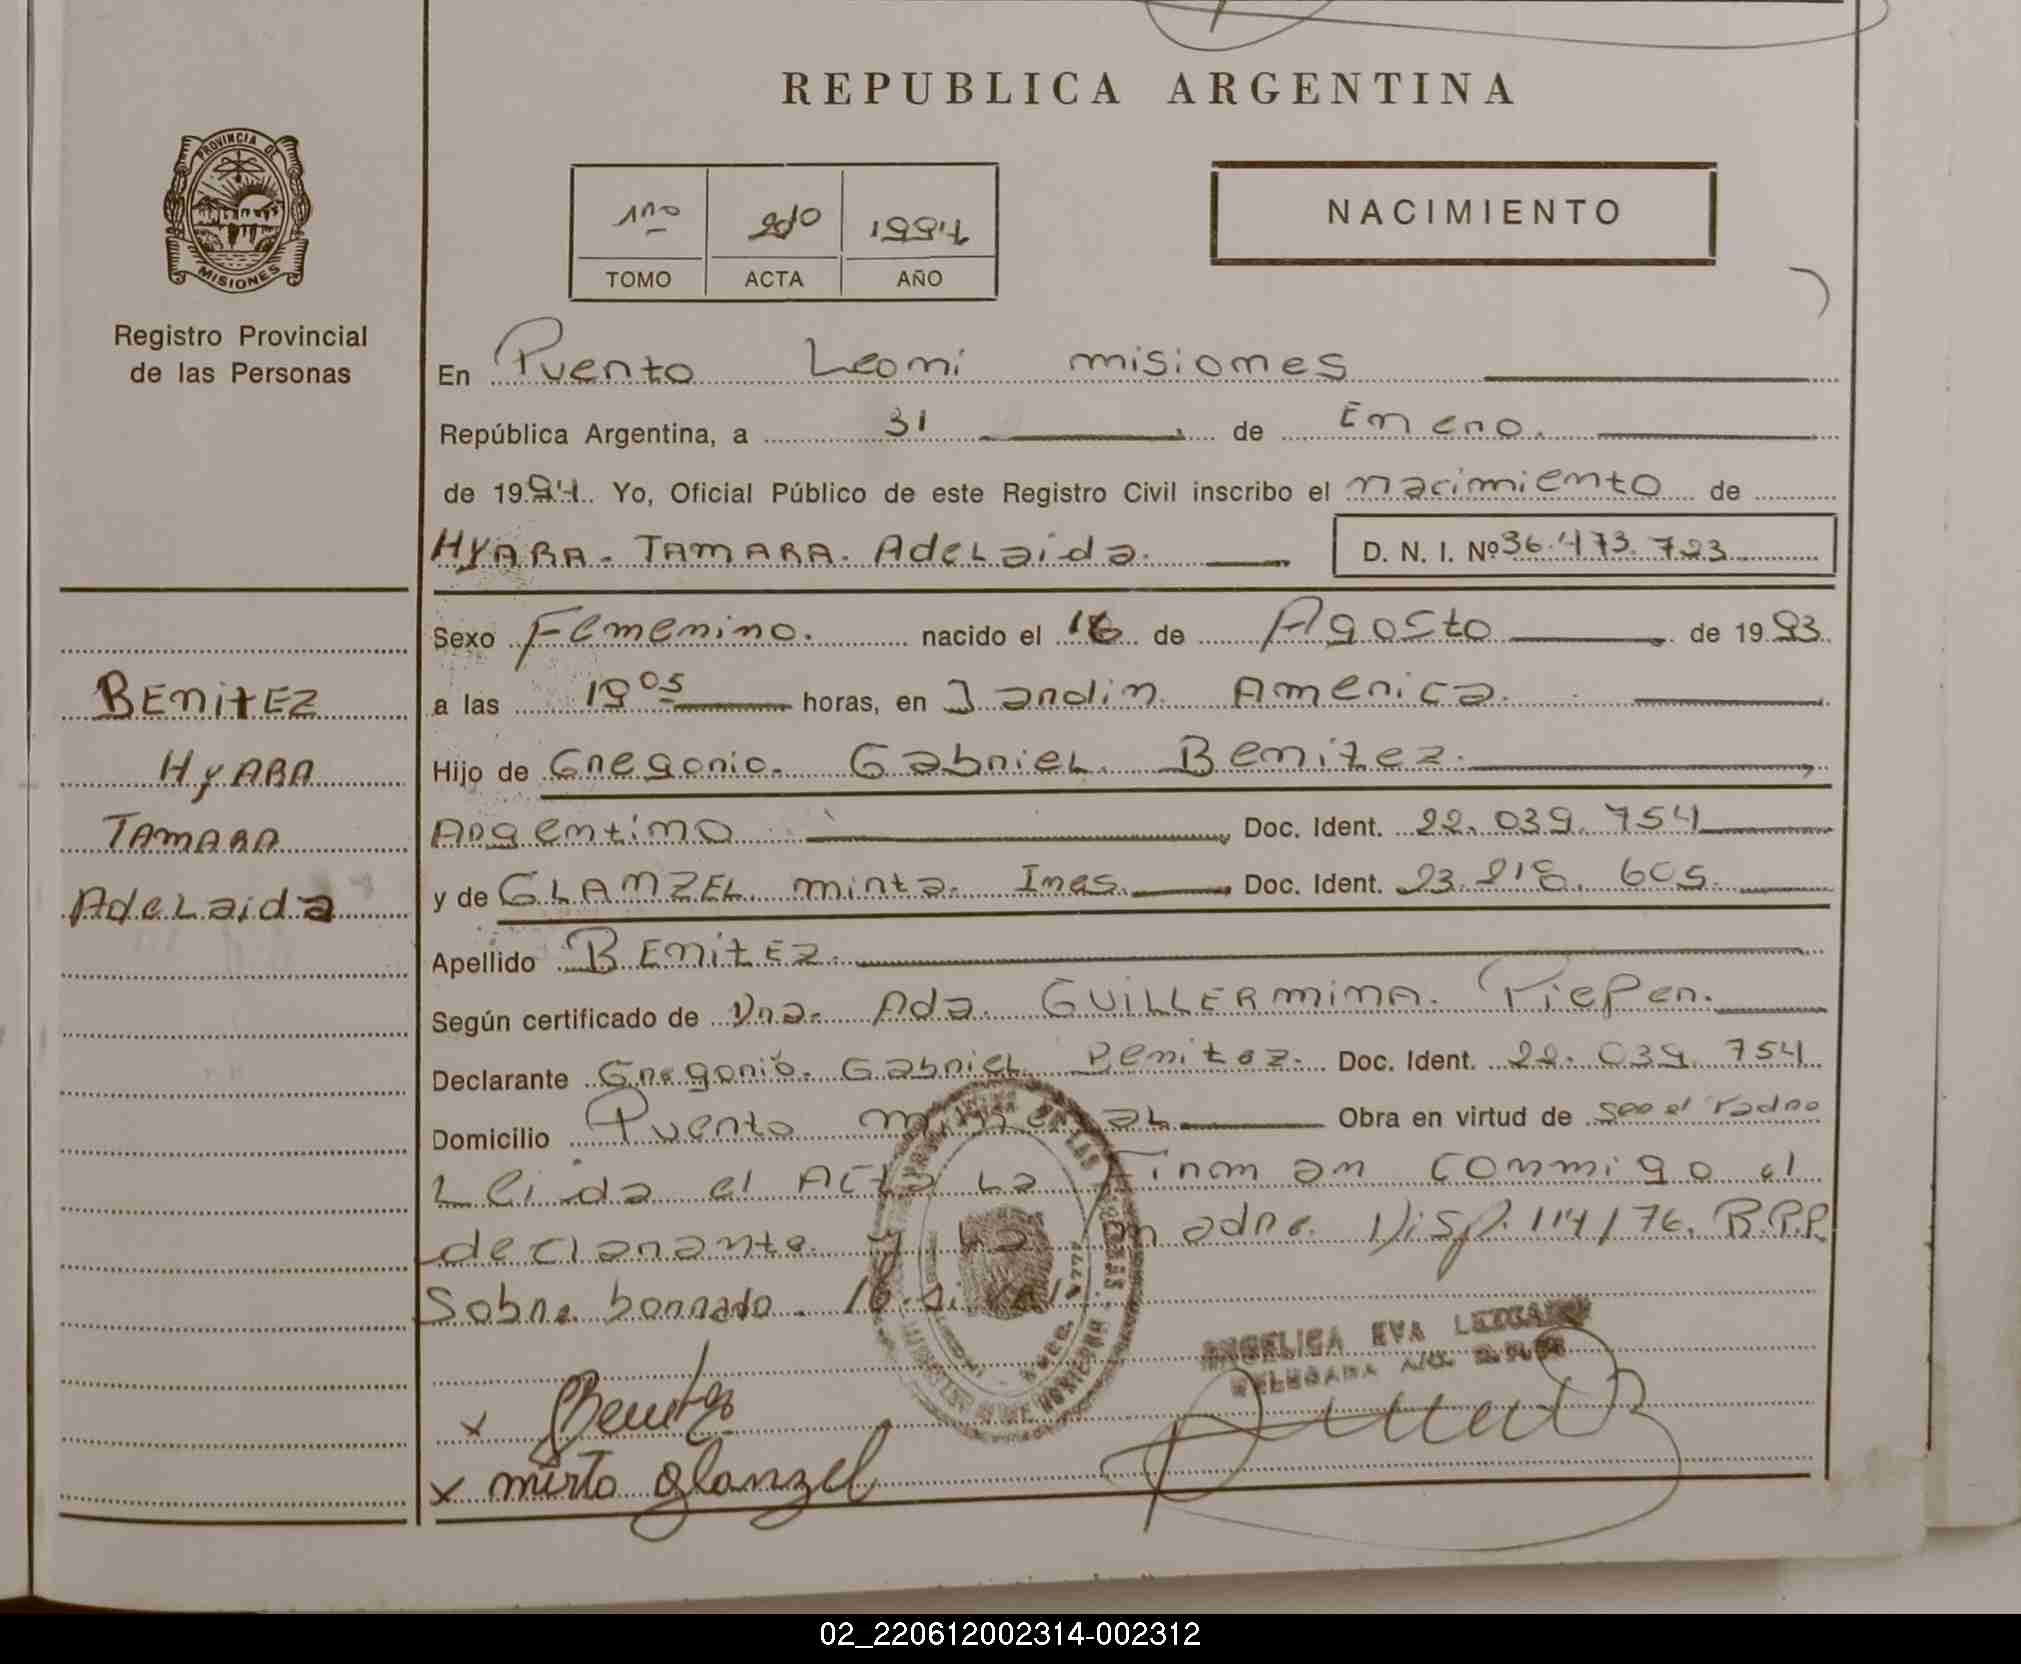 REPUBLICA ARGENTINA
PROVINCIA DE
MISIONES
Registro Provincial
de las Personas
1no
TOMO ACTA AÑO
NACIMIENTO
En Puerto Leoni misiones
República Argentina, a 31 de Enero.
de 1994. Yo, Oficial Público de este Registro Civil inscribo el nacimiento de
HYARA. TAMARA. AdeLaida. D. N. I. Nº 36.473.723
Sexo Femenino. nacido el 16 de Agosto de 1993
a las 19 05 horas, en Jardin America.
Hijo de Gregorio. Gabriel Benitez.
Argentino Doc. Ident. 22.039.754
y de GLANZEL mirta. Ines. Doc. Ident. 23.218.605.
Apellido BENITEZ.
Según certificado de Dra. Ada. GUILLERMINA. Pieper.
Declarante Gregorio. Gabriel Benitez. Doc. Ident. 22.039.754
Domicilio Puerto mineral Obra en virtud de ser el Padre
Leida el Acta La Firman conmigo el
declarante. y La madre. Disp. 114/76. R.P.P.
Sobre borrado. 16.
Benitez
mirta glanzel
ANGELICA EVA
DELEGADA
BENITEZ
HYARA
TAMARA
AdeLaida
02_220612002314-002312